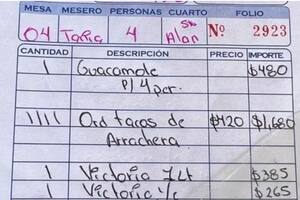 MESA MESERO PERSONAS CUARTO FOLIO
04 Tania 4 Sr. Alan Nº 2923
CANTIDAD DESCRIPCIÓN PRECIO IMPORTE
1 Guacamole $480
P/4 per.
1111 Ord tacos de $420 $1,680
Arrachera
1 Victoria 1Lt $385
1 Victoria 1/2 $265